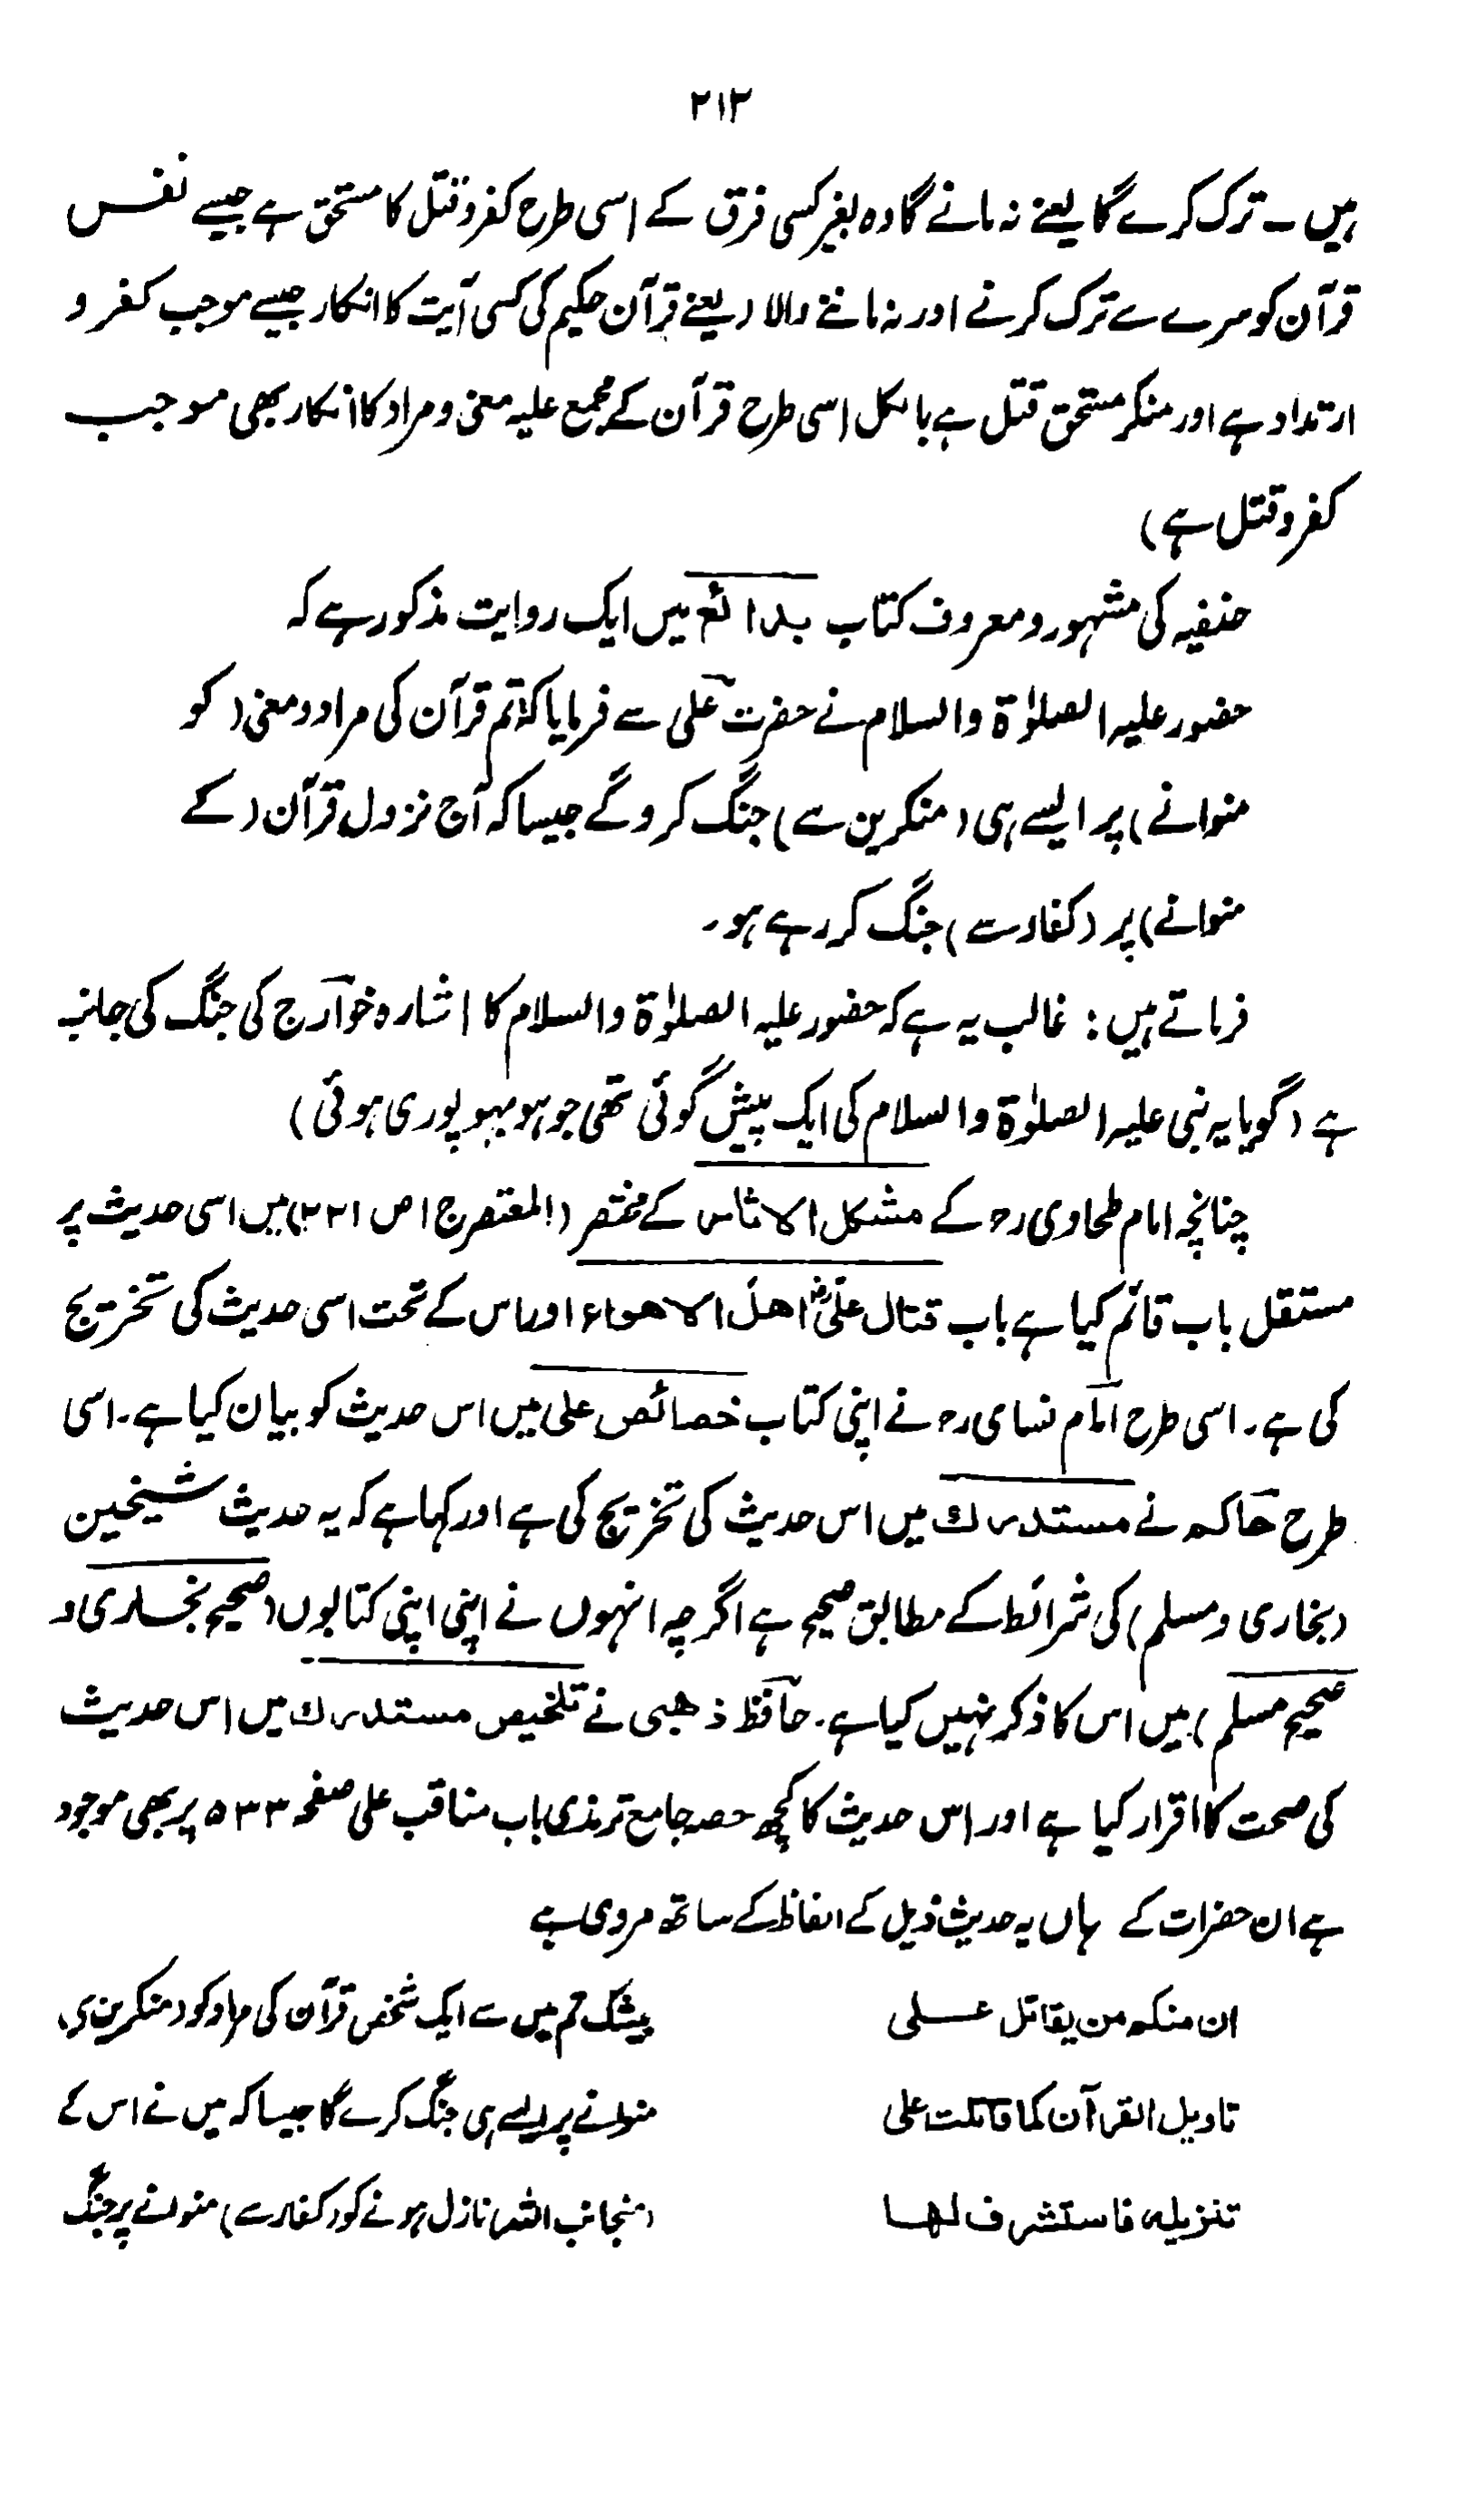 ۲۱۳
ہیں ۔ ترک کرے گا یعنے نہ مانے گا وہ بغیر کسی فرق کے اسی طرح کفر و قتل کا مستحق ہے جیسے نفس
قرآن کو سرے سے ترک کرنے اور نہ ماننے والا (یعنے قرآن حکیم کی کسی آیت کا انکار جیسے موجب کفر و
ارتداد ہے اور منکر مستحق قتل ہے بالکل اسی طرح قرآن کے مجمع علیہ معنی و مراد کا انکار بھی موجب
کفر و قتل ہے)
حنفیہ کی مشہور و معروف کتاب بدائع میں ایک روایت مذکور ہے کہ
حضور علیہ الصلوٰۃ والسلام نے حضرت علی سے فرمایا کہ تم قرآن کی مراد و معنی (کو
منوانے) پر ایسے ہی (منکرین سے) جنگ کرو گے جیسا کہ آج نزول قرآن (کے
منوانے) پر (کفار سے) جنگ کر رہے ہو۔
فرماتے ہیں : غالب یہ ہے کہ حضور علیہ الصلوٰۃ والسلام کا اشارہ خوارج کی جنگ کی جانب
ہے (گویا یہ نبی علیہ الصلوٰۃ والسلام کی ایک پیش گوئی تھی جو ہو بہو پوری ہوئی)
چنانچہ امام طحاوی رح کے مشکل الاثار کے مختصر (المعتصر ج ا ص ۲۲۱) میں اسی حدیث پر
مستقل باب قائم کیا ہے باب قتال علیؓ اھل الاھواء اور اس کے تحت اسی حدیث کی تخریج
کی ہے۔ اسی طرح امام نسای رح نے اپنی کتاب خصائص علی میں اس حدیث کو بیان کیا ہے۔ اسی
طرح حاکم نے مستدرک میں اس حدیث کی تخریج کی ہے اور کہا ہے کہ یہ حدیث شیخین
(بخاری و مسلم) کی شرائط کے مطابق صحیح ہے اگرچہ انہوں نے اپنی اپنی کتابوں (صحیح بخاری و
صحیح مسلم) میں اس کا ذکر نہیں کیا ہے۔ حافظ ذھبی نے تلخیص مستدرک میں اس حدیث
کی صحت کا اقرار کیا ہے اور اس حدیث کا کچھ حصہ جامع ترمذی باب مناقب علی صفحہ ۵۳۳ پر بھی موجود
ہے ان حضرات کے ہاں یہ حدیث ذیل کے الفاظ کے ساتھ مروی ہے
ان منکم من یقاتل عـلی
تاویل القرآن کما قاتلت علی
تنزیلہ، فاستشرف لھا
بیشک تم میں سے ایک شخص قرآن کی مراد کو (منکرین سے)
منوانے پر ایسے ہی جنگ کرے گا جیسا کہ میں نے اس کے
(منجانب اللہ نازل ہونے کو (کفار سے) منوانے پر جنگ